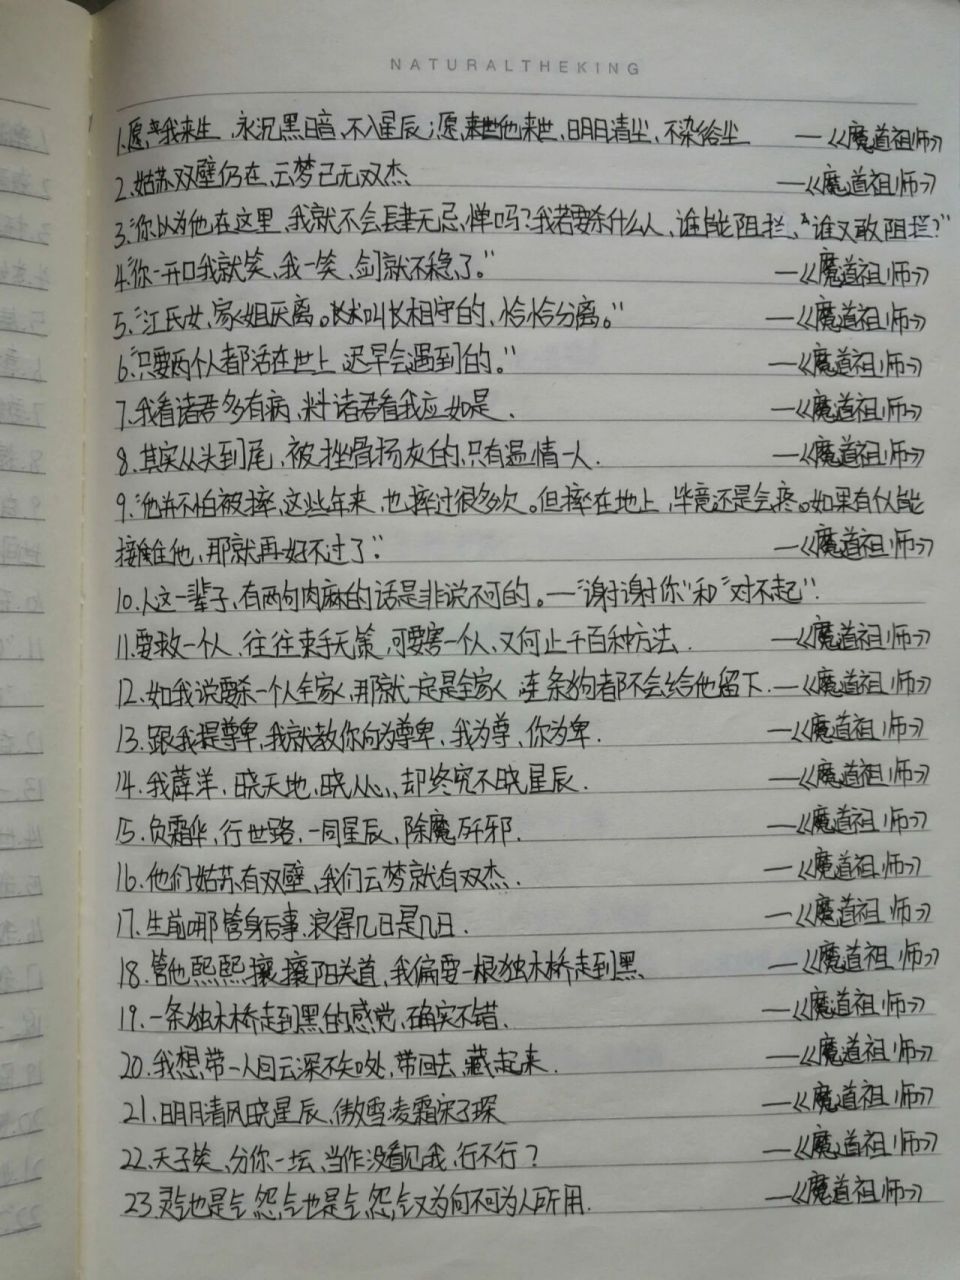 NATURALTHEKING
1.愿我来生,永沉黑暗,不入星辰;愿他来世,明月清尘,不染俗尘 —《魔道祖师》
2.姑苏双壁仍在,云梦已无双杰 —《魔道祖师》
3."你以为他在这里,我就不会肆无忌惮吗?我若要杀什么人,谁能阻拦,谁又敢阻拦?"
4."你一开口我就笑,我一笑,剑就不稳了。" —《魔道祖师》
5."江氏女,家姐厌离。长相守的,恰恰分离。" —《魔道祖师》
6."只要两个人都活在世上,迟早会遇到的。" —《魔道祖师》
7.我看诸君多有病,料诸君看我应如是. —《魔道祖师》
8.其实从头到尾,被挫骨扬灰的,只有温情一人. —《魔道祖师》
9."他并不怕被摔,这些年来,也摔过很多次。但摔在地上,毕竟还是会疼。如果有人能
接住他,那就再好不过了" —《魔道祖师》
10.人这一辈子,有两句肉麻的话是非说不可的。—"谢谢你"和"对不起".
11.要救一个人,往往束手无策,可要害一个人,又何止千百种方法. —《魔道祖师》
12.如我说要杀一个人全家,那就一定是全家,连条狗都不会给他留下.—《魔道祖师》
13.跟我提尊卑,我就教你何为尊卑,我为尊、你为卑. —《魔道祖师》
14.我薛洋,晓天地,晓人心,却终究不晓星辰. —《魔道祖师》
15.负霜华,行世路,一同星辰,除魔歼邪. —《魔道祖师》
16.他们姑苏有双壁,我们云梦就有双杰. —《魔道祖师》
17.生前哪管身后事,浪得几日是几日. —《魔道祖师》
18.管他熙熙攘攘阳关道,我偏要一根独木桥走到黑. —《魔道祖师》
19.一条独木桥走到黑的感觉,确实不错. —《魔道祖师》
20.我想,带一人回云深不知处,带回去,藏起来. —《魔道祖师》
21.明月清风晓星辰,傲雪凌霜宋子琛 —《魔道祖师》
22.天子笑,分你一坛,当作没看见我,行不行? —《魔道祖师》
23.灵气也是气,怨气也是气,怨气又为何不可为人所用. —《魔道祖师》